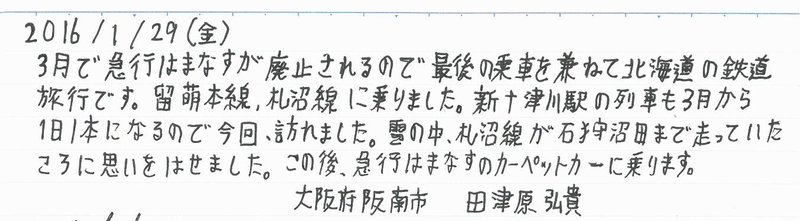 2016/1/29(金)
3月で急行はまなすが廃止されるので最後の乗車を兼ねて北海道の鉄道
旅行です。留萌本線,札沼線に乗りました。新十津川駅の列車も3月から
1日1本になるので今回、訪れました。雪の中、札沼線が石狩沼田まで走っていた
ころに思いをはせました。この後、急行はまなすのカーペットカーに乗ります。
大阪府阪南市 田津原弘貴